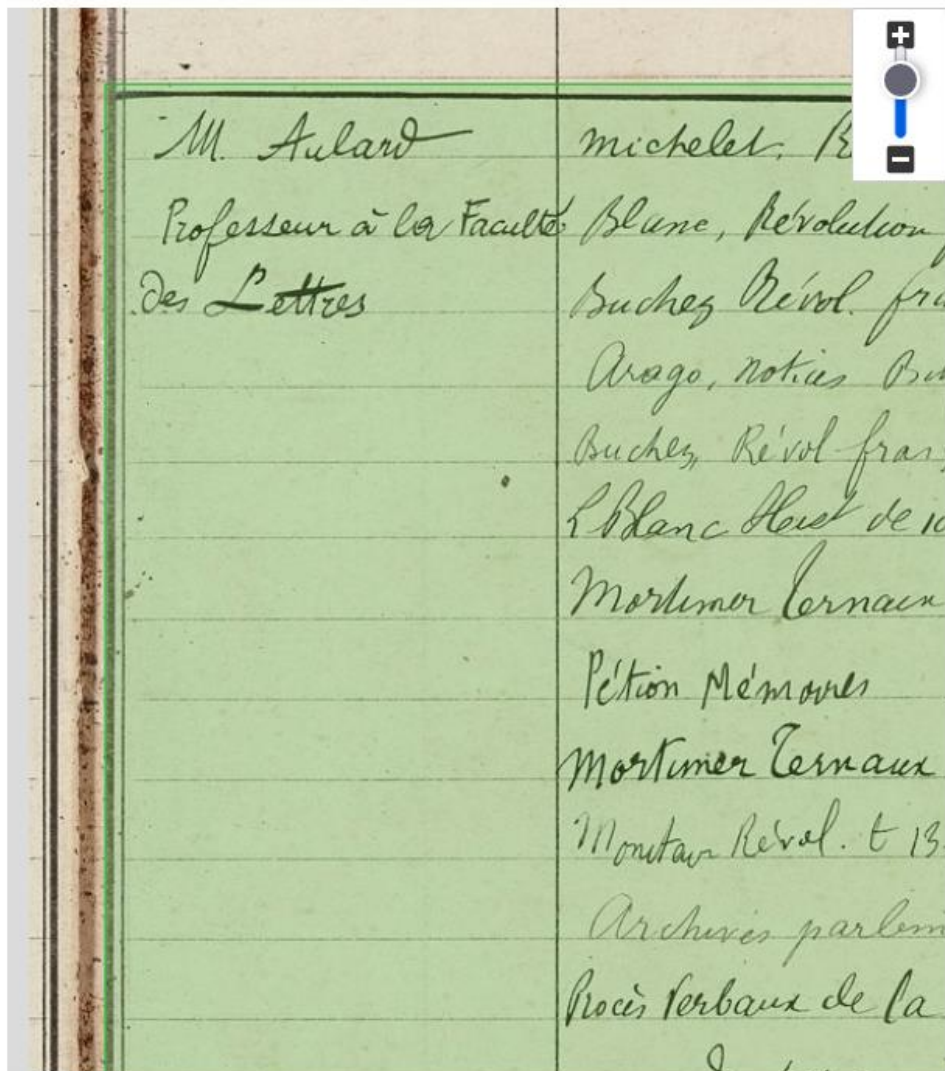 M. Aulard
Professeur à la Faculté
des Lettres
Michelet.
Blanc, Révolution
Buchez Révol.
Arago, Notices
Buchez, Révol
L Blanc Hist de
Mortimer Ternaux
Pétion Mémoires
Mortimer Ternaux
Révol. t 13
Archives
Procès Verbaux de la